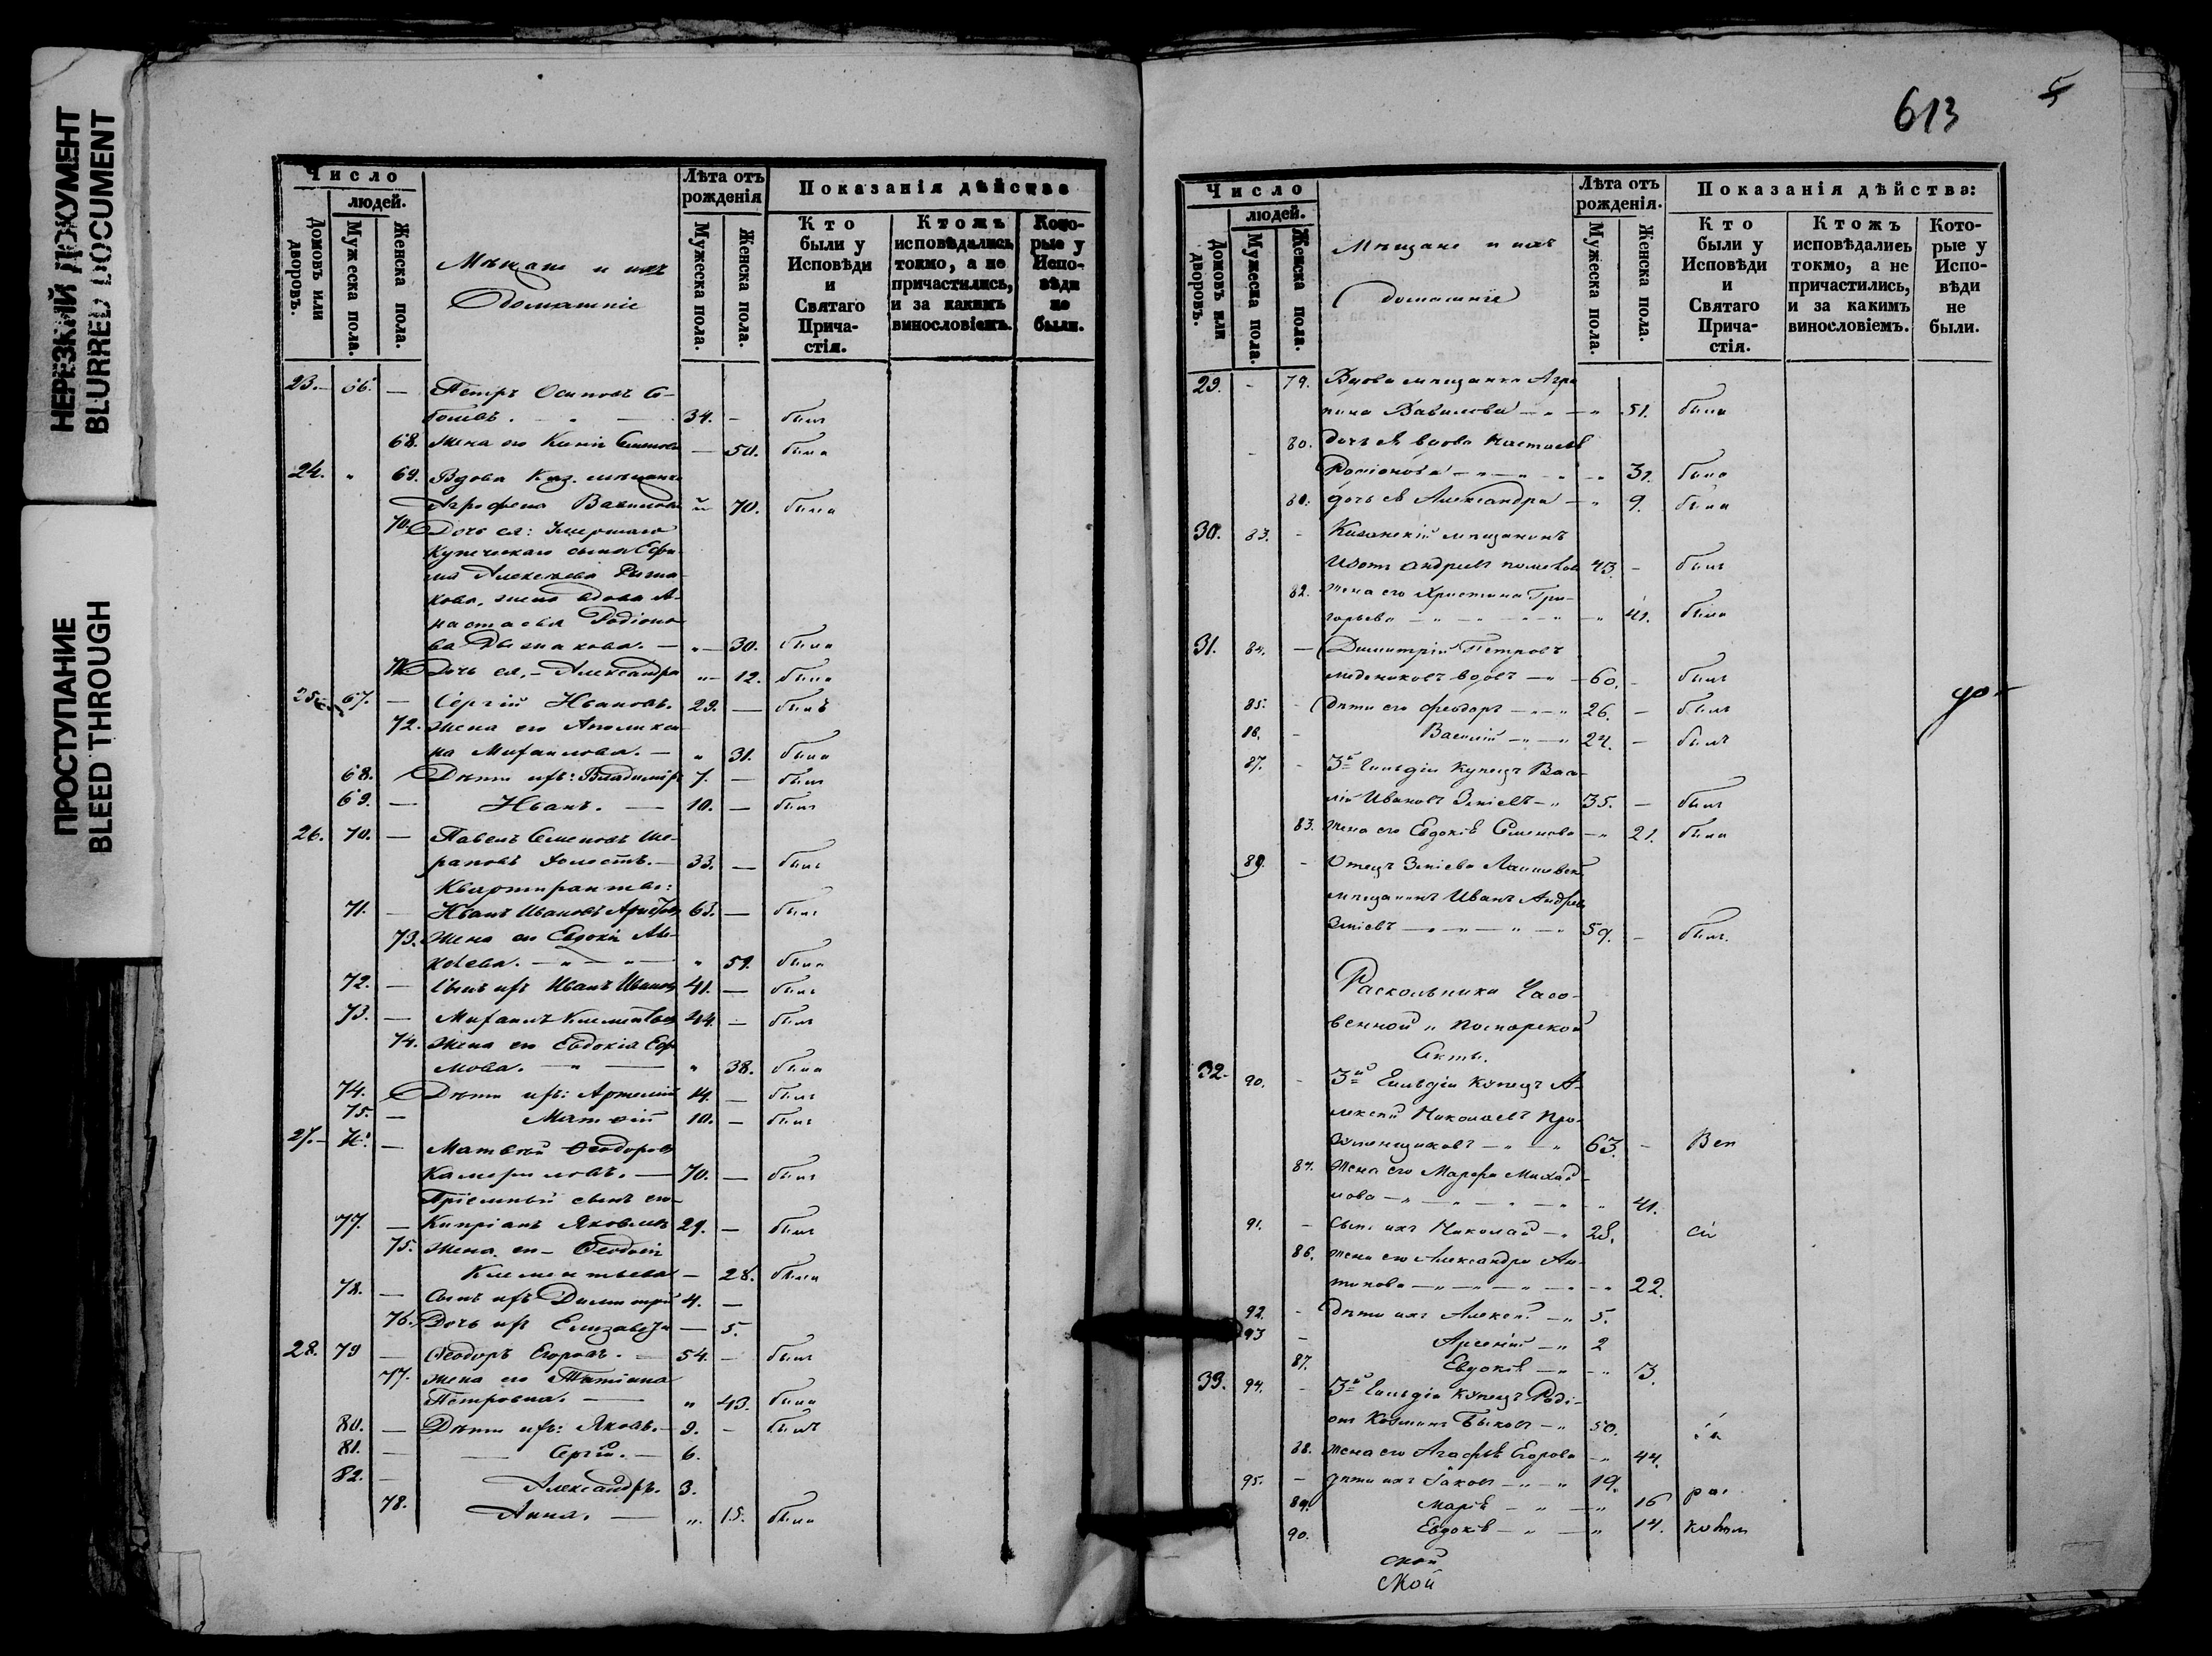 НЕРЕЗКИЙ ДОКУМЕНТ
BLURRED DOCUMENT
ПРОСТУПАНИЕ
BLEED THROUGH
Число
людей.
Домовъ или дворовъ.
Мужеска пола.
Женска пола.
Мещане и ихъ
Домашніе
Лѣта отъ рожденія
Мужеска пола.
Женска пола.
Показанія дѣйства
Кто были у Исповѣди и Святаго Причастія.
Ктожъ исповѣдались токмо, а не причастились, и за какимъ винословіемъ.
Которые у Исповѣди не были.
23. 66. — Петръ Осиповъ
34. — былъ
68. Жена его Семенова — 50. была
24. " 69. Вдова Каз. мещанка
Агрофена 70. была
70. Дочь ея: Умершаго
купеческаго сына Ефи-
ма Алексеева
кова, жена вдова А-
настасья Родіоно-
ва " — 30. была
71. Дочь ея, — Александра " — 12. была
25. 67. — Сергій Ивановъ. 29. — былъ
72. Жена его Аполинари-
на Михаилова. — " 31. была
68. Дѣти ихъ: Владиміръ 7. — былъ
69. — Иванъ. — 10. — былъ
26. 70. — Павелъ Семеновъ Ше-
раповъ холостъ. — 33. — былъ
Квартиранты:
71. — Иванъ Ивановъ 63. — былъ
73. Жена его Евдокія Але-
ксеева. — " — " — " 59. была
72. — Сынъ ихъ Иванъ Ивановъ 41. — былъ
73. — Михаилъ Климентьевъ 44. — былъ
74. Жена его Евдокія Ефи-
мова. — " — " 38. была
74. Дѣти ихъ: Артемій 14. — былъ
75. — Матвій 10. — былъ
27. 76. — Матвѣй Ѳеодоровъ
70. — былъ
Пріемный сынъ его
77. — Кипріанъ Яковлевъ 29. — былъ
75. Жена его — Ѳеодосія
Климентьева — 28. была
78. — Сынъ ихъ Димитрій 4. —
76. Дочь ихъ Елизавета — 5.
28. 79 — Ѳеодоръ Егоровъ. — 54. — былъ
77. Жена его Татіана
Петровна. — " 43. была
80. — Дѣти ихъ: Яковъ. — 9. — былъ
81. — — Сергій. — 6.
82. — Александръ. 3.
78. Анна. — " 15. была
613
5
Число
людей.
Домовъ или дворовъ.
Мужеска пола.
Женска пола.
Мещане и ихъ
домашніе
Лѣта отъ рожденія.
Мужеска пола.
Женска пола.
Показанія дѣйства:
Кто были у Исповѣди и Святаго Причастія.
Ктожъ исповѣдались токмо, а не причастились, и за какимъ винословіемъ.
Которые у Исповѣди не были.
29. - 79. Вдова мещанка Агри-
пина Вавилова — " — " 51. была
80. дочь ея вдова Настасья
Родіонова — " — " 31. была
81. дочь ея Александра — " 9. была
30. 83. - Казанскій мещанинъ
Изотъ Андреевъ 43. — былъ
82. жена его Христина Гри-
горьева — " — " — " 41. была
31. 84. — Димитрій Петровъ
вдовъ — " — 60. - былъ
85. - Дѣти его Феодоръ — " — " 26. — былъ
86. - Василій — " — " 24. — былъ
87. - 3й Гильдіи купецъ Васи-
лій Ивановъ Зміевъ — " 35. — былъ
83. жена его Евдокія Семенова — " 21. была
89. - Отецъ Зміева
мещанинъ Иванъ Андреевъ
Зміевъ — " — " — " 59. - былъ.
Раскольники Часо-
венной и Поморской
Секты.
32. 90. - 3й Гильдіи купецъ А-
лексей Николаевъ Про-
63. - Вси
84. жена его Марфа Михай-
лова — " — " — " 41.
91. - сынъ ихъ Николай — " 28. сіи
86. жена его Александра Ан-
типова — " — " — " 22.
92. - дѣти ихъ Алексей — " 5.
93 - Арсеній — " 2
87. Евдокія — " — " 3.
33. 94. - 3й Гильдіи купецъ Роді-
онъ Козминъ Быковъ — " 50.
88. жена его Агафья Егорова — " 44.
95. - дѣти ихъ Іаковъ — " — " 19.
89. Марія — " — " 16 рас
90. Евдокія — " — " 14. кольн
ской
ской